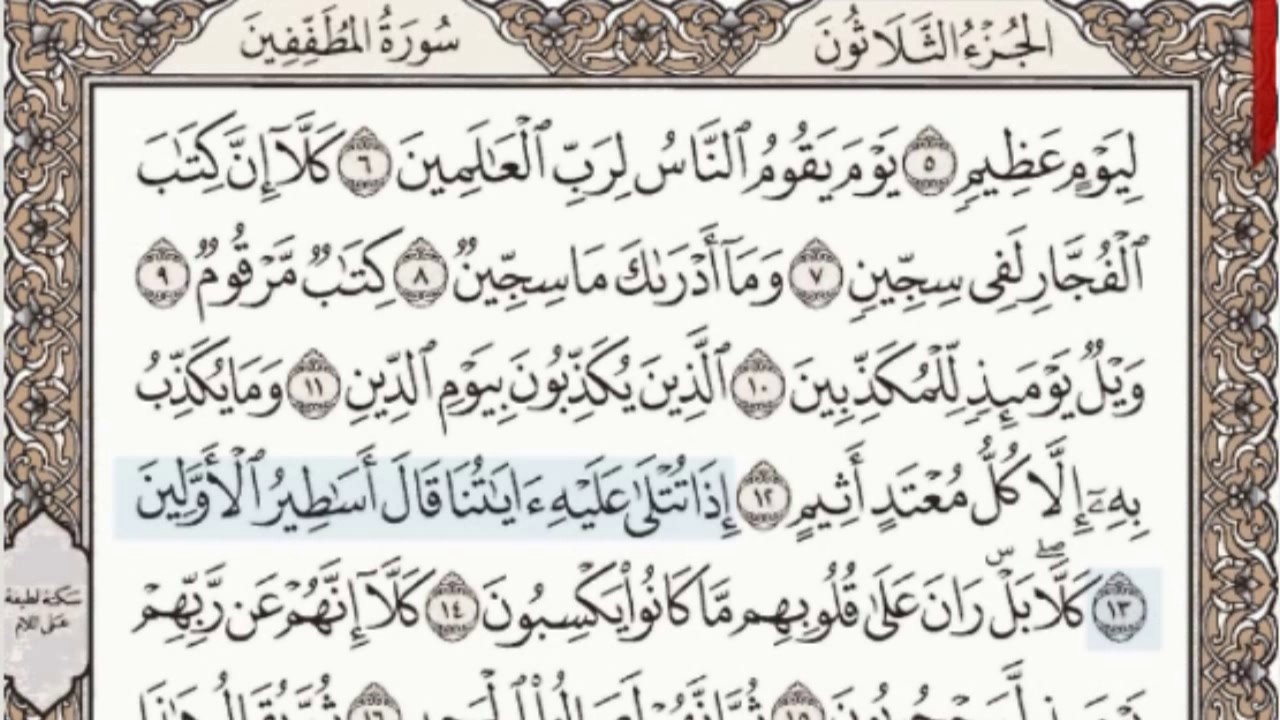 الجُزْءُ الثَّلَاثُونَ
سُورَةُ المُطَفِّفِينَ
لِيَوْمٍ عَظِيمٖ ٥ يَوْمَ يَقُومُ ٱلنَّاسُ لِرَبِّ ٱلْعَٰلَمِينَ ٦ كَلَّآ إِنَّ كِتَٰبَ
ٱلْفُجَّارِ لَفِى سِجِّينٖ ٧ وَمَآ أَدْرَىٰكَ مَا سِجِّينٞ ٨ كِتَٰبٞ مَّرْقُومٞ ٩
وَيْلٞ يَوْمَئِذٖ لِّلْمُكَذِّبِينَ ١٠ ٱلَّذِينَ يُكَذِّبُونَ بِيَوْمِ ٱلدِّينِ ١١ وَمَا يُكَذِّبُ
بِهِۦٓ إِلَّا كُلُّ مُعْتَدٍ أَثِيمٍ ١٢ إِذَا تُتْلَىٰ عَلَيْهِ ءَايَٰتُنَا قَالَ أَسَٰطِيرُ ٱلْأَوَّلِينَ
١٣ كَلَّاۖ بَلْۜ رَانَ عَلَىٰ قُلُوبِهِم مَّا كَانُوا۟ يَكْسِبُونَ ١٤ كَلَّآ إِنَّهُمْ عَن رَّبِّهِمْ
سكتة لطيفة
على اللام